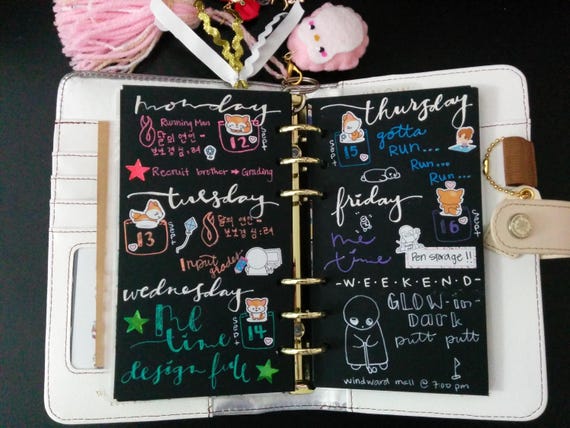 monday
Running Man
달의 연인 -
보보경심:려
Sept
12
Recruit brother → Grading
tuesday
Sept
13
달의 연인 -
보보경심:려
Input grades
wednesday
Sept
14
design
thursday
Sept
15
gotta
Run...
Run...
Run...
friday
16
me
time
Pen storage!!
-WEEKEND-
GLOW-in-
DARK
putt putt
windward mall @ 7:00 pm